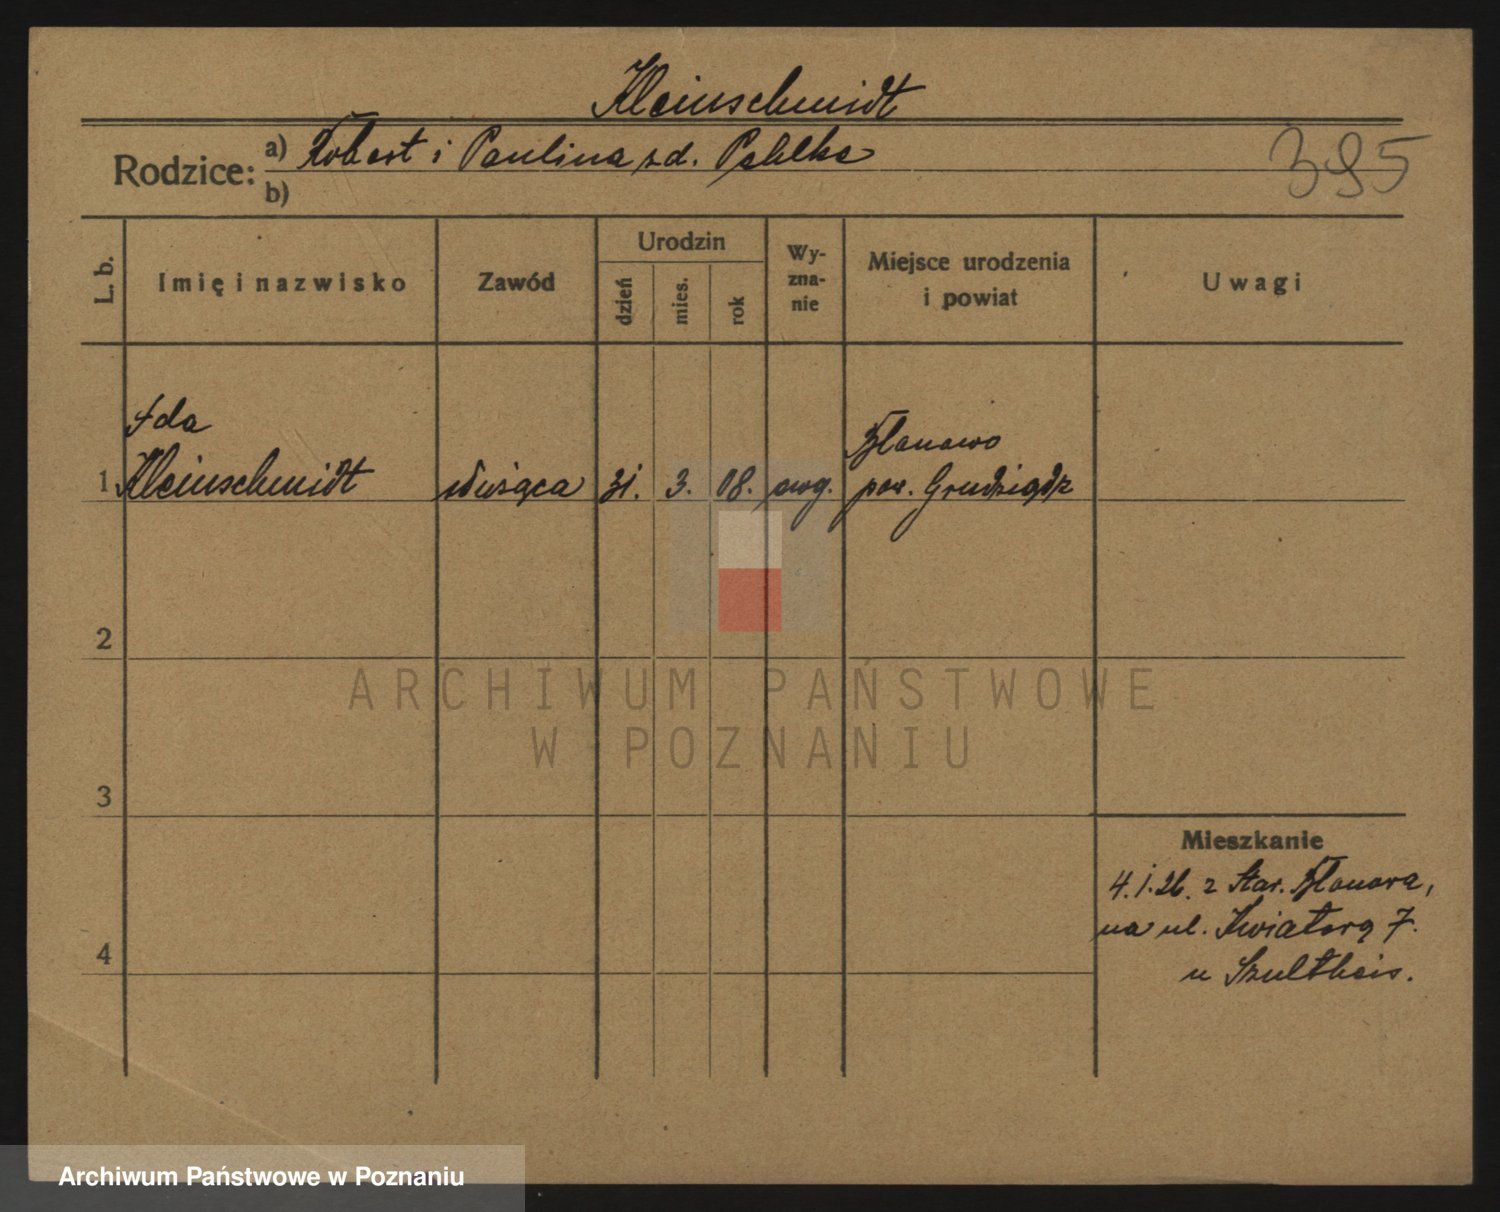 Kleinschmidt
Rodzice:
a) Robert i Paulina zd. Pahlke
b)
395
L. b.
Imię i nazwisko
Zawód
Urodzin
dzień
mies.
rok
Wy-
zna-
nie
Miejsce urodzenia
i powiat
Uwagi
Ida
1 Kleinschmidt
służąca
31. 3. 08.
ewg.
Błonowo
pow. Grudziądz
2
3
4
ARCHIWUM PAŃSTWOWE
W POZNANIU
Mieszkanie
4.1.26. z Star. Błonowa,
na ul. Kwiatową 7.
u Szultheis.
Archiwum Państwowe w Poznaniu